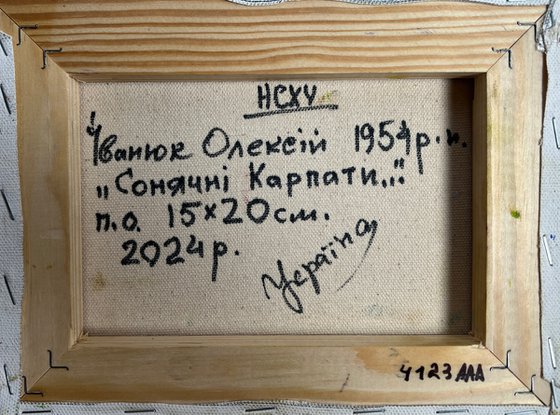 НСХУ
Іванюк Олексій 1954 р.н.
„Сонячні Карпати„."
п.о. 15×20 см.
2024 р.
Україна
4123 ААА